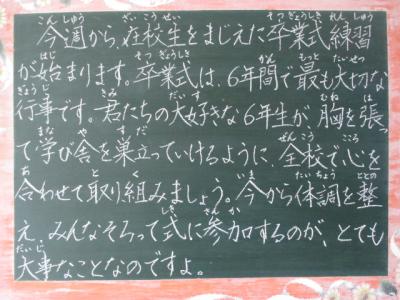 今週から、在校生をまじえに卒業式練習
が始まります。卒業式は、6年間で最も大切な
行事です。君たちの大好きな6年生が、胸を張っ
て学び舎を巣立っていけるように、全校で心を
合わせて取り組みましょう。今から体調を整
え、みんなそろって式に参加するのが、とても
大事なことなのですよ。